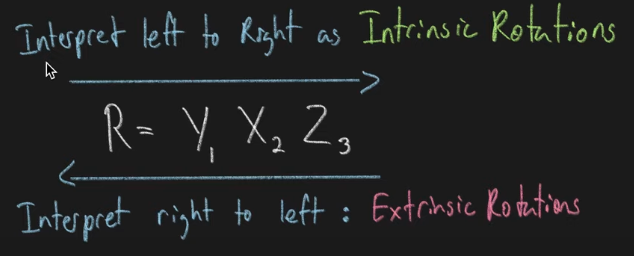 Interpret left to Right as Intrinsic Rotations
R = Y₁ X₂ Z₃
Interpret right to left : Extrinsic Rotations